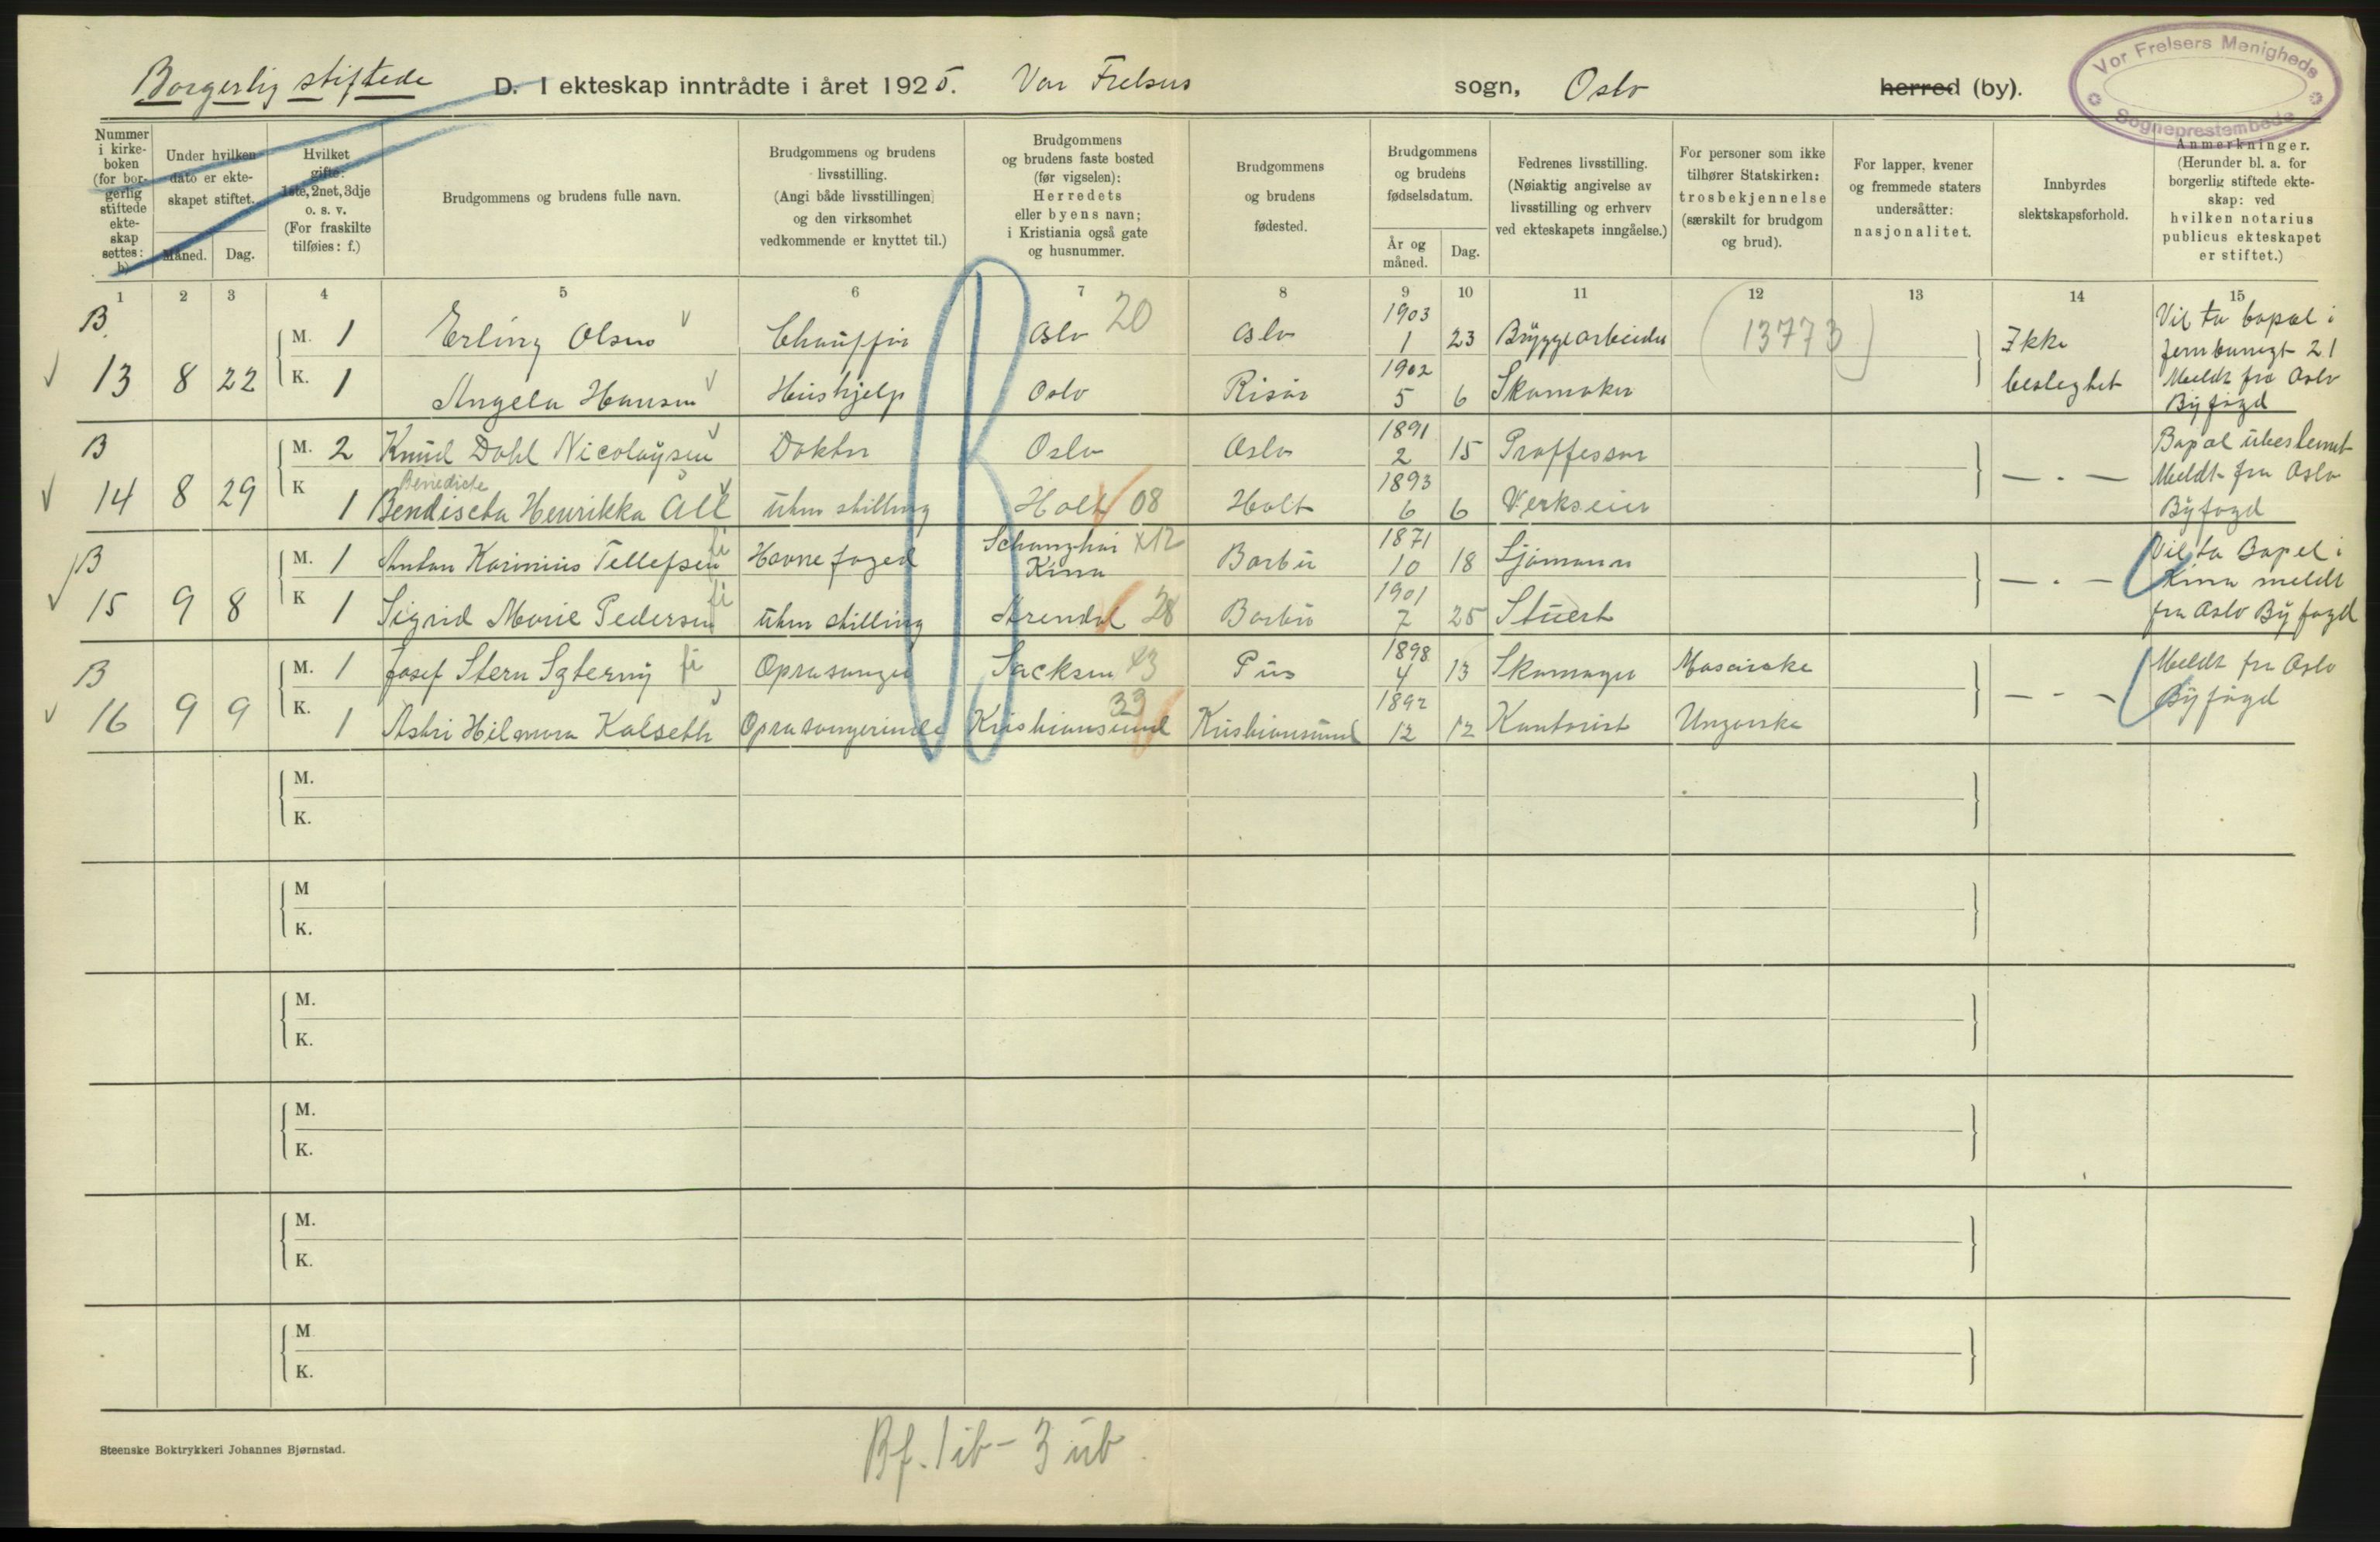 Borgerlig stiftede D. I ekteskap inntrådte i året 1925. Vor Frelsers sogn, Oslo herred (by).
Vor Frelsers Menigheds
Sogneprestembede
Nummer i kirke-boken (for bor-gerlig stiftede ekte-skap settes: b)
Under hvilken dato er ekte-skapet stiftet.
Måned. Dag.
Hvilket gifte: 1ste, 2net, 3dje o. s. v. (For fraskilte tilføies: f.)
Brudgommens og brudens fulle navn.
Brudgommens og brudens livsstilling. (Angi både livsstillingen og den virksomhet vedkommende er knyttet til.)
Brudgommens og brudens faste bosted (før vigselen): Herredets eller byens navn; i Kristiania også gate og husnummer.
Brudgommens og brudens fødested.
Brudgommens og brudens fødselsdatum.
År og måned. Dag.
Fedrenes livsstilling. (Nøiaktig angivelse av livsstilling og erhverv ved ekteskapets inngåelse.)
For personer som ikke tilhører Statskirken: trosbekjennelse (særskilt for brudgom og brud).
For lapper, kvener og fremmede staters undersåtter: nasjonalitet.
Innbyrdes slektskapsforhold.
Anmerkninger. (Herunder bl. a. for borgerlig stiftede ekte-skap: ved hvilken notarius publicus ekteskapet er stiftet.)
1 2 3 4 5 6 7 8 9 10 11 12 13 14 15
B. 13 8 22
M. 1 Erling Olsen Chauffør Oslo 20 Oslo 1903 1 23 Bryggearbeider (13773)
K. 1 Angela Hansen Hushjelp Oslo Risør 1902 5 6 Skomaker
Ikke beslegtet
Vil ta bopæl i
21
Meldt fra Oslo
Byfogd
B 14 8 29
M. 2 Knud Dahl Nicolaysen Doktor Oslo Oslo 1891 2 15 Proffessor
Benedicte
K 1 Henrikka Aall uten stilling Holt 08 Holt 1893 6 6 Verkseier
— . —
Bopæl ubestemt
Meldt fra Oslo
Byfogd
B 15 9 8
M. 1 Anton Karinius Tellefsen fi Havnefoged Schanghai x12 Kina Barbu 1871 10 18 Sjømann
K 1 Sigrid Marie Pedersen fi uten stilling Arendal 28 Barbu 1901 7 25 Stuert
— . —
Vil ta Bopel i
Kina meldt
fra Oslo Byfogd
B 16 9 9
M. 1 Josef Stern fi Oprasanger Sacksen x3 1898 4 13 Skomager Mosaiske
K. 1 Astri Hilmora Kalseth Oprasangerinde Kristiansund 33 Kristiansund 1892 12 12 Kontorist Ungarske
— - —
Meldt fra Oslo
Byfogd
M.
K.
M
K.
M.
K.
M.
K.
M.
K.
M
K.
Steenske Boktrykkeri Johannes Bjørnstad.
Bf. 1 ib - 3 ub.